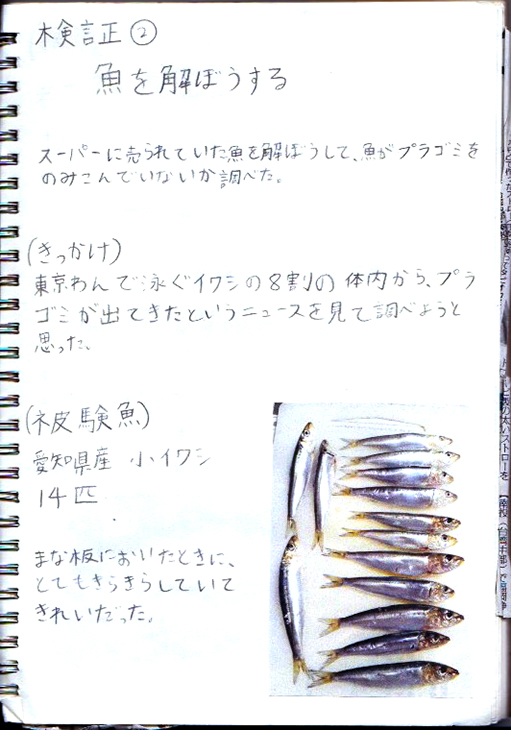 検証②
魚を解ぼうする
スーパーに売られていた魚を解ぼうして、魚がプラゴミを
のみこんでいないか調べた。
(きっかけ)
東京わんで泳ぐイワシの8割の体内から、プラ
ゴミが出てきたというニュースを見て調べようと
思った。
(被験魚)
愛知県産 小イワシ
14匹
まな板においたときに、
とてもきらきらしていて
きれいだった。